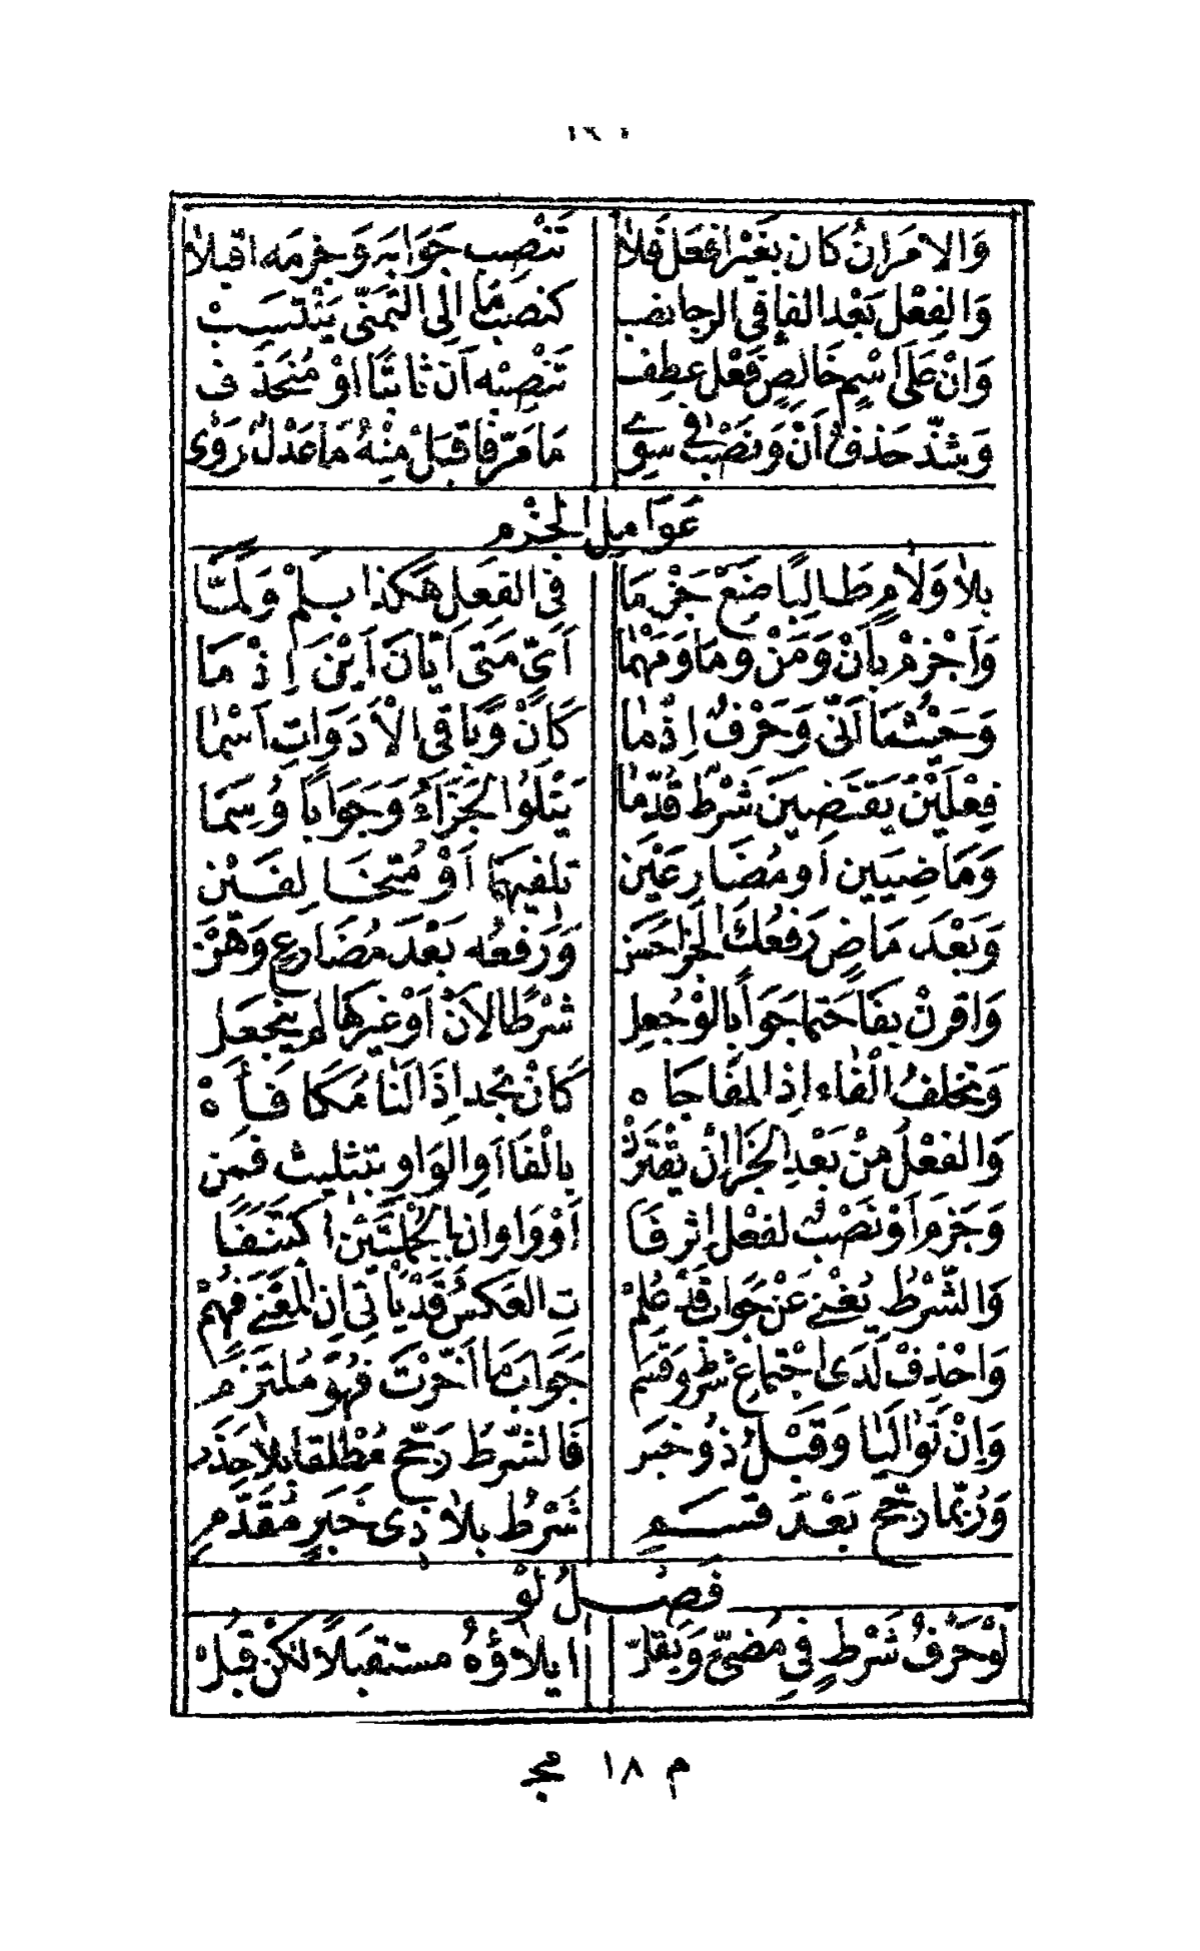 وَالامرَانْ كان بغَيْر افعَل فَلَا تَنْصِب جَوَابَه وَجزمَه اقبلَا
وَالفِعْل بَعْد الفا في الرجا نصب كنصب مَا الى التمَنّي يَنْتَسِبْ
وَانْ عَلَى اسْمٍ خَالِصٍ فَعْل عطِف تَنْصِبْه اَن ثابتًا اوْ مُنحَذف
وَشذّ حَذفْ اَنْ وَنَصْب في سِوى مَا مَرّ فاقبَلْ مِنْهُ مَا عَدْلٌ رَوَى
عَوَامِل الجَزْم
بلَا وَلَامٍ طَالِبًا ضَعْ جَزمَا في الفعَل هَكَذا بِلَمْ وَلَمَّا
وَاَجْزمْ بِاَنْ وَمَنْ وَمَا وَمَهْمَا اَيّ مَتَى اَيَّانَ اَيْنَ اِذْ مَا
وَحَيْثُمَا اَنّى وَحَرْفٌ اِذْمَا كَانْ وَبَاقي الْاَدَوَاتِ اَسْمَا
فِعْلَيْنْ يَقتَضِينَ شَرْطٌ قُدّمَا يَتْلُوا الجَزَاءُ وَجَوَابًا وُسِمَا
وَمَاضِيَيين اَو مُضَارِعَيْن تلفيهمَا اَوْ مُتخَالِفَيْن
وَبَعْدَ مَاضٍ رَفعُكَ الجَزا حَسَن وَرَفعُه بَعْدَ مُضَارعٍ وَهَن
وَاقرنْ بِفَا حَتما جَوَابًا لوْ جُعِل شَرْطًا لانْ اَوْ غَيرهَا لم ينجعَل
وَتخلفُ الْفَاء اِذا المفَاجَاه كَانْ تجد اِذَا لنَا مُكَافَأَهْ
وَالفعْل مِنْ بَعْدِ الجَزا اِنْ يَقْتَرنْ بِالْفَا اَو الوَاو بتثليث قَمن
وَجَزم اَوْ نَصْبٌ لفعْل اِثر فَا اَوْ وَاو ان بِالجُمْلَتَيْن اكتنَفَا
وَالشَّرْطُ يُغْني عَنْ جَوَاب قَدْ عُلِمْ ت العَكسُ قَدْ يَأتي اِنِ المَعْنَى فُهِمْ
وَاحْذِفْ لَدَى اجْتماعِ شرْط وَقَسَم جَوَاب مَا اَخّرْتَ فَهْوَ مُلتَزَم
وَاِنْ تَوَاليَا وَقَبْلُ ذُو خبَر فَالشَّرْطُ رَجّح مُطْلقًا بلَا حَذَر
وَرُبّمَا رجّح بَعْدَ قسَمِ شَرْطٌ بلَا ذِى خَبَرٍ مُقَدّمِ
فَصْلُ لَوْ
لَوْ حَرْفُ شَرْطٍ في مُضيٍّ وَيَقلّ ايلَاؤُهُ مستقبَلًا لكنْ قُبِلْ
م ١٨ مج